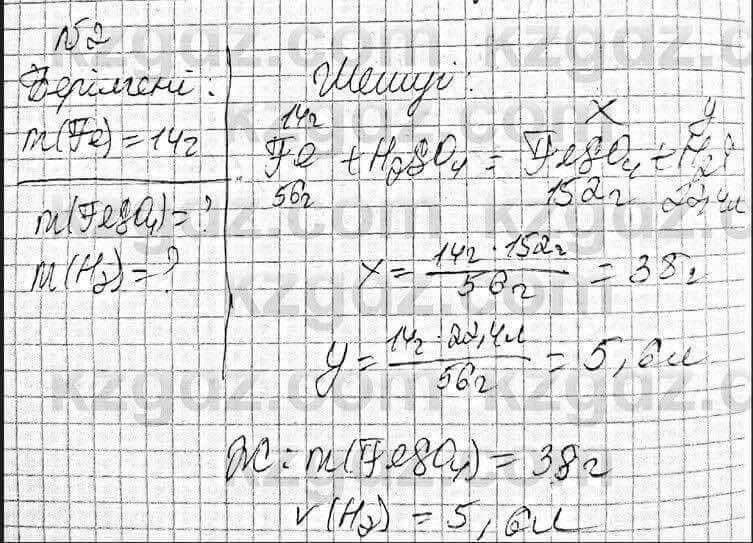 №2
Берілгені:
m(Fe)=14г
m(FeSO₄)=?
m(H₂)=?
Шешуі:
14г x y
Fe + H₂SO₄ = FeSO₄ + H₂↑
56г 152г 22,4л
x = 14г · 152г / 56г = 38г
y = 14г · 22,4л / 56г = 5,6л
Ж: m(FeSO₄) = 38г
v(H₂) = 5,6л
kzgdz.com